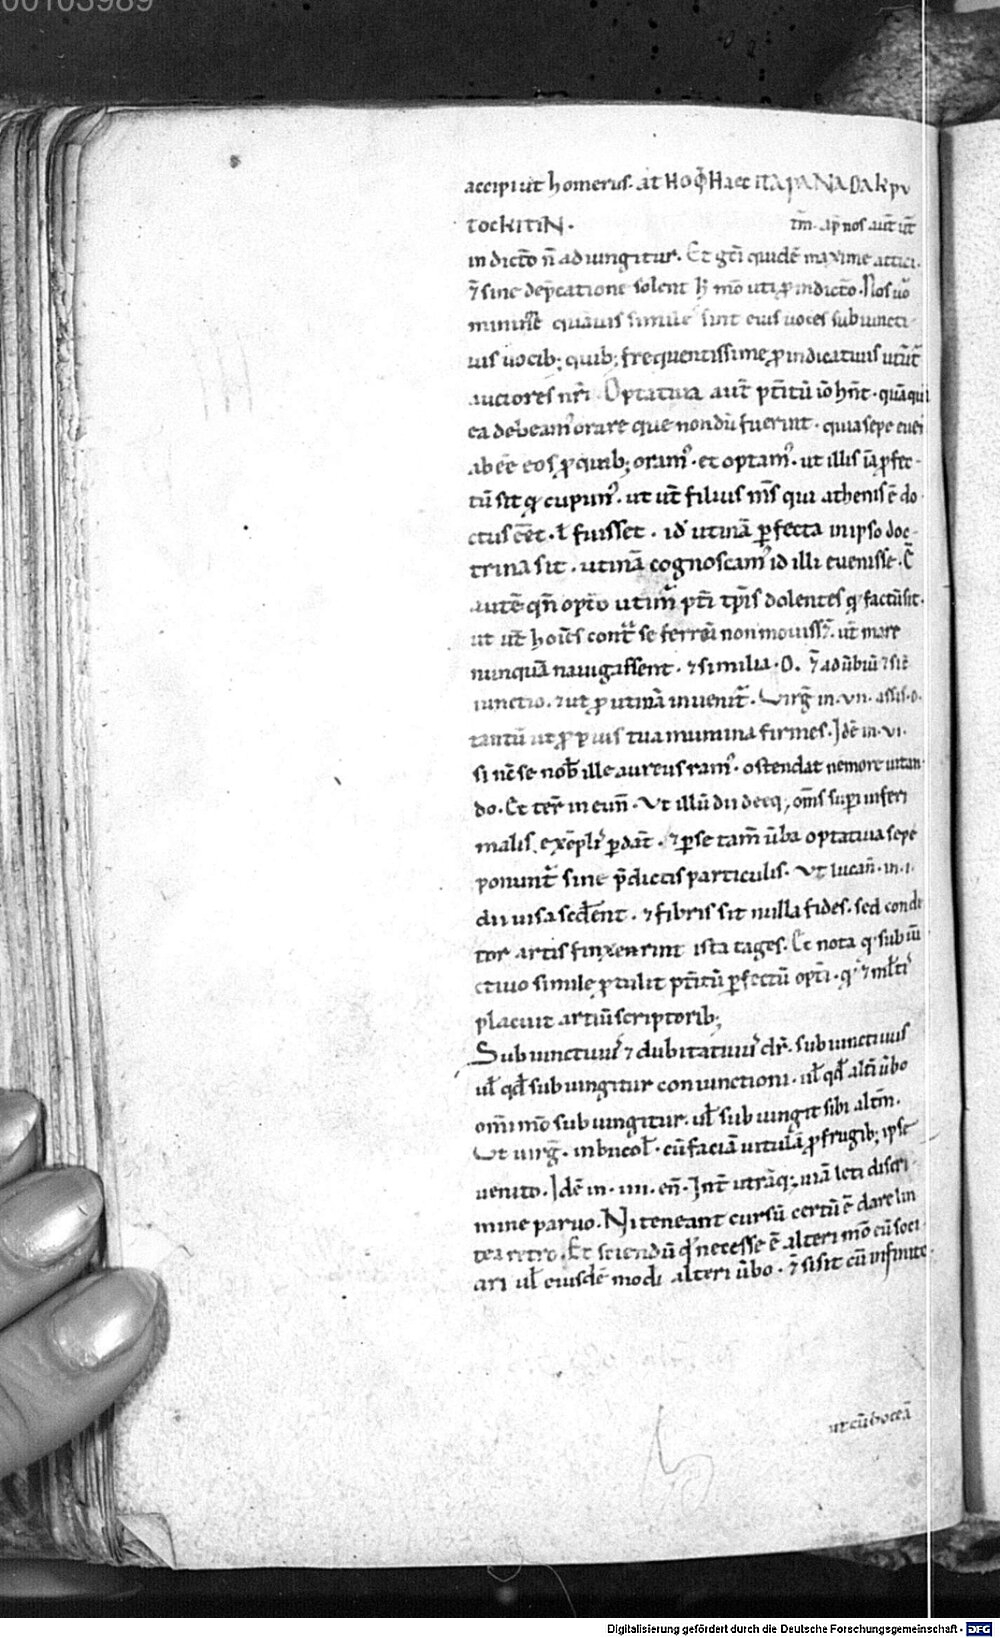 00103989
accipiut homerus. at HoΦHaec ΠAPANADAKPV
TOCKITIN. tm̄. ap̄ nos aut̄ ut̄
indicto n̄ adiungitur. Et gr̄i quidē maxime attici.
⁊ sine dep̄catione solent h̄ mō uti ꝓ indicto. Nos uo
minime quāuis simile sint eius uoces subiuncti
uis uocib; quib; frequentissime ꝓ indicatiuis utūt̄
auctores nr̄i. Optatiua aut̄ pt̄itū iō hn̄t. quāqua
ea debeam᾽ orare que nondū fuerint. quia sepe euei
abēe eos ꝓ quib; oram᾽. et optam᾽. ut illis iā ꝑfec-
tū sit q cupim᾽. ut ut̄ filius m̄s qui athenis ē do
ctus eēt. ł fuisset. id utinā ꝑfecta in ipso doc-
trina sit. utinā cognoscam᾽ id illi euenisse.
autē qn̄ opto utim̄ pt̄i tp̄is dolentes q factū sit.
ut ut̄ hoīes cont̄ se ferrū non mouiss⁊. ut̄ mare
nunquā nauigassent. ⁊ similia. O. ⁊ adūbiū ⁊
iunctio. ⁊ ut ꝓ utinā inuenit̄. Virḡ in. VII.
tantū ut ꝓ ꝓius tua numina firmes. Idē in. VI.
si nc̄ se nob̄ ille aureus ram᾽. ostendat nemore in tan
do. Et ter̄ in eun̄. Ut illū dii deeq; om̄s supi inferi
malis exēpli ꝑdāt. ⁊ ꝑ se tam̄ ūba optatiua sepe
ponunt̄ sine p̄dictis particulis. Ut lucan̄. in. I.
dii uisa secłent. ⁊ fibris sit nulla fides. sed condi
tor artis finxerint ista tages. Et nota q subiū
ctiuo simile ꝓtulit pt̄itū ꝑfectū opt̄i. q ⁊ mlti
placuit artiū scriptorib;
Subiunctiuus ⁊ dubitatiuus dr̄. subiunctiuus
uł qđ subiungitur coniunctioni. uł qđ altī ūbo
om̄imō subiungitur. uł subiungit sibi altm̄.
Ut uirḡ. in bucoł. cū faciā uitulā ꝓ frugib; ipse
uenito. Idē in. III. en̄. Int̄ utrāq; uiā leti discri-
mine paruo. Ni teneant cursū certū ē dare lin
tea retro. Et sciendū qđ necesse ē alteri mō eū soci-
ari uł eiusdē modi alteri ūbo. ⁊ si sit cū infinito
ut cū doceā
Digitalisierung gefördert durch die Deutsche Forschungsgemeinschaft - DFG